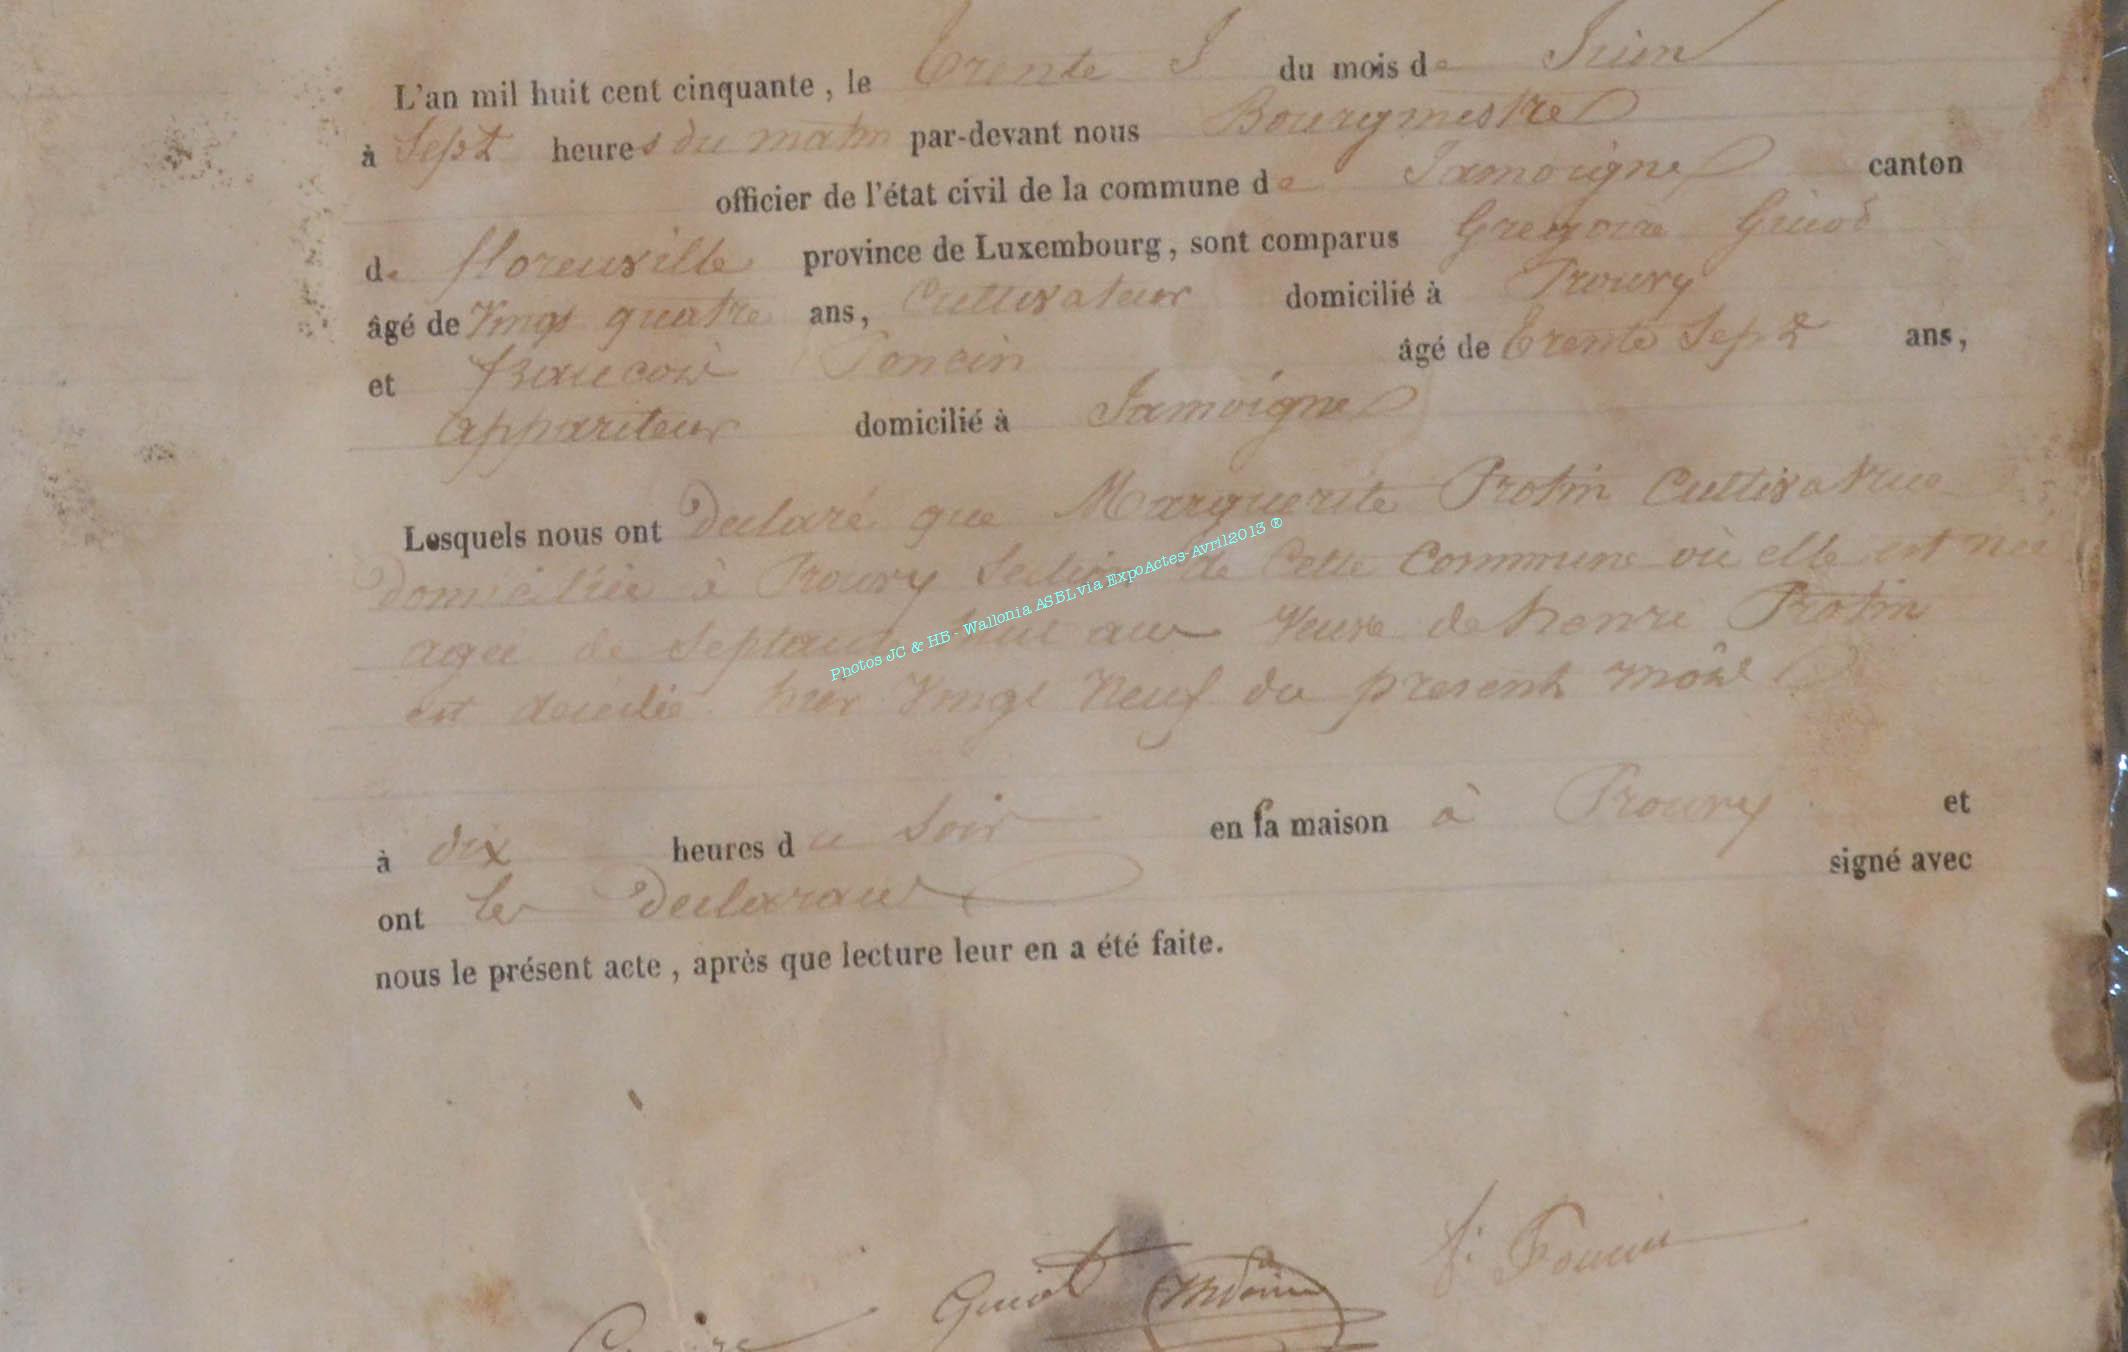 L'an mil huit cent cinquante, le Trente du mois de Juin
à Sept heures du matin par-devant nous Bourgmestre
officier de l'état civil de la commune de Jamoigne canton
de florenville province de Luxembourg, sont comparus Gregoire
âgé de Vingt quatre ans, Cultivateur domicilié à Prouvy
et francois Poncin âgé de Trente Sept ans,
appariteur domicilié à Jamoigne
Lesquels nous ont declaré que Marguerite Protin Cultivatrice
domiciliée à Prouvy Section de Cette Commune où elle est née
agée de Septante huit ans Veuve de henri Protin
est décédée hier Vingt Neuf du present mois
à dix heures du soir en sa maison à Prouvy et
ont les declarans signé avec
nous le présent acte, après que lecture leur en a été faite.
Photos JC & HB - Wallonia ASBL via ExpoActes-Avril2013 ®